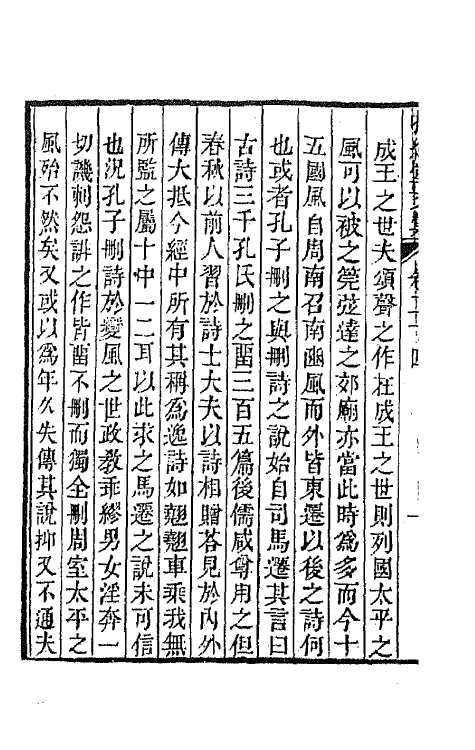 成王之世夫頌聲之作在成王之世則列國太平之
風可以被之筦弦達之郊廟亦當此時爲多而今十
五國風自周南召南豳風而外皆東遷以後之詩何
也或者孔子刪之與刪詩之說始自司馬遷其言曰
古詩三千孔氏刪之畱三百五篇後儒咸尊用之但
春秋以前人習於詩士大夫以詩相贈荅見於內外
傳大抵今經中所有其稱爲逸詩如翹翹車乘我無
所監之屬十中一二耳以此求之馬遷之說未可信
也況孔子刪詩於變風之世政敎乖繆男女淫奔一
切譏刺怨誹之作皆畱不刪而獨全刪周室太平之
風殆不然矣又或以爲年久失傳其說抑又不通夫